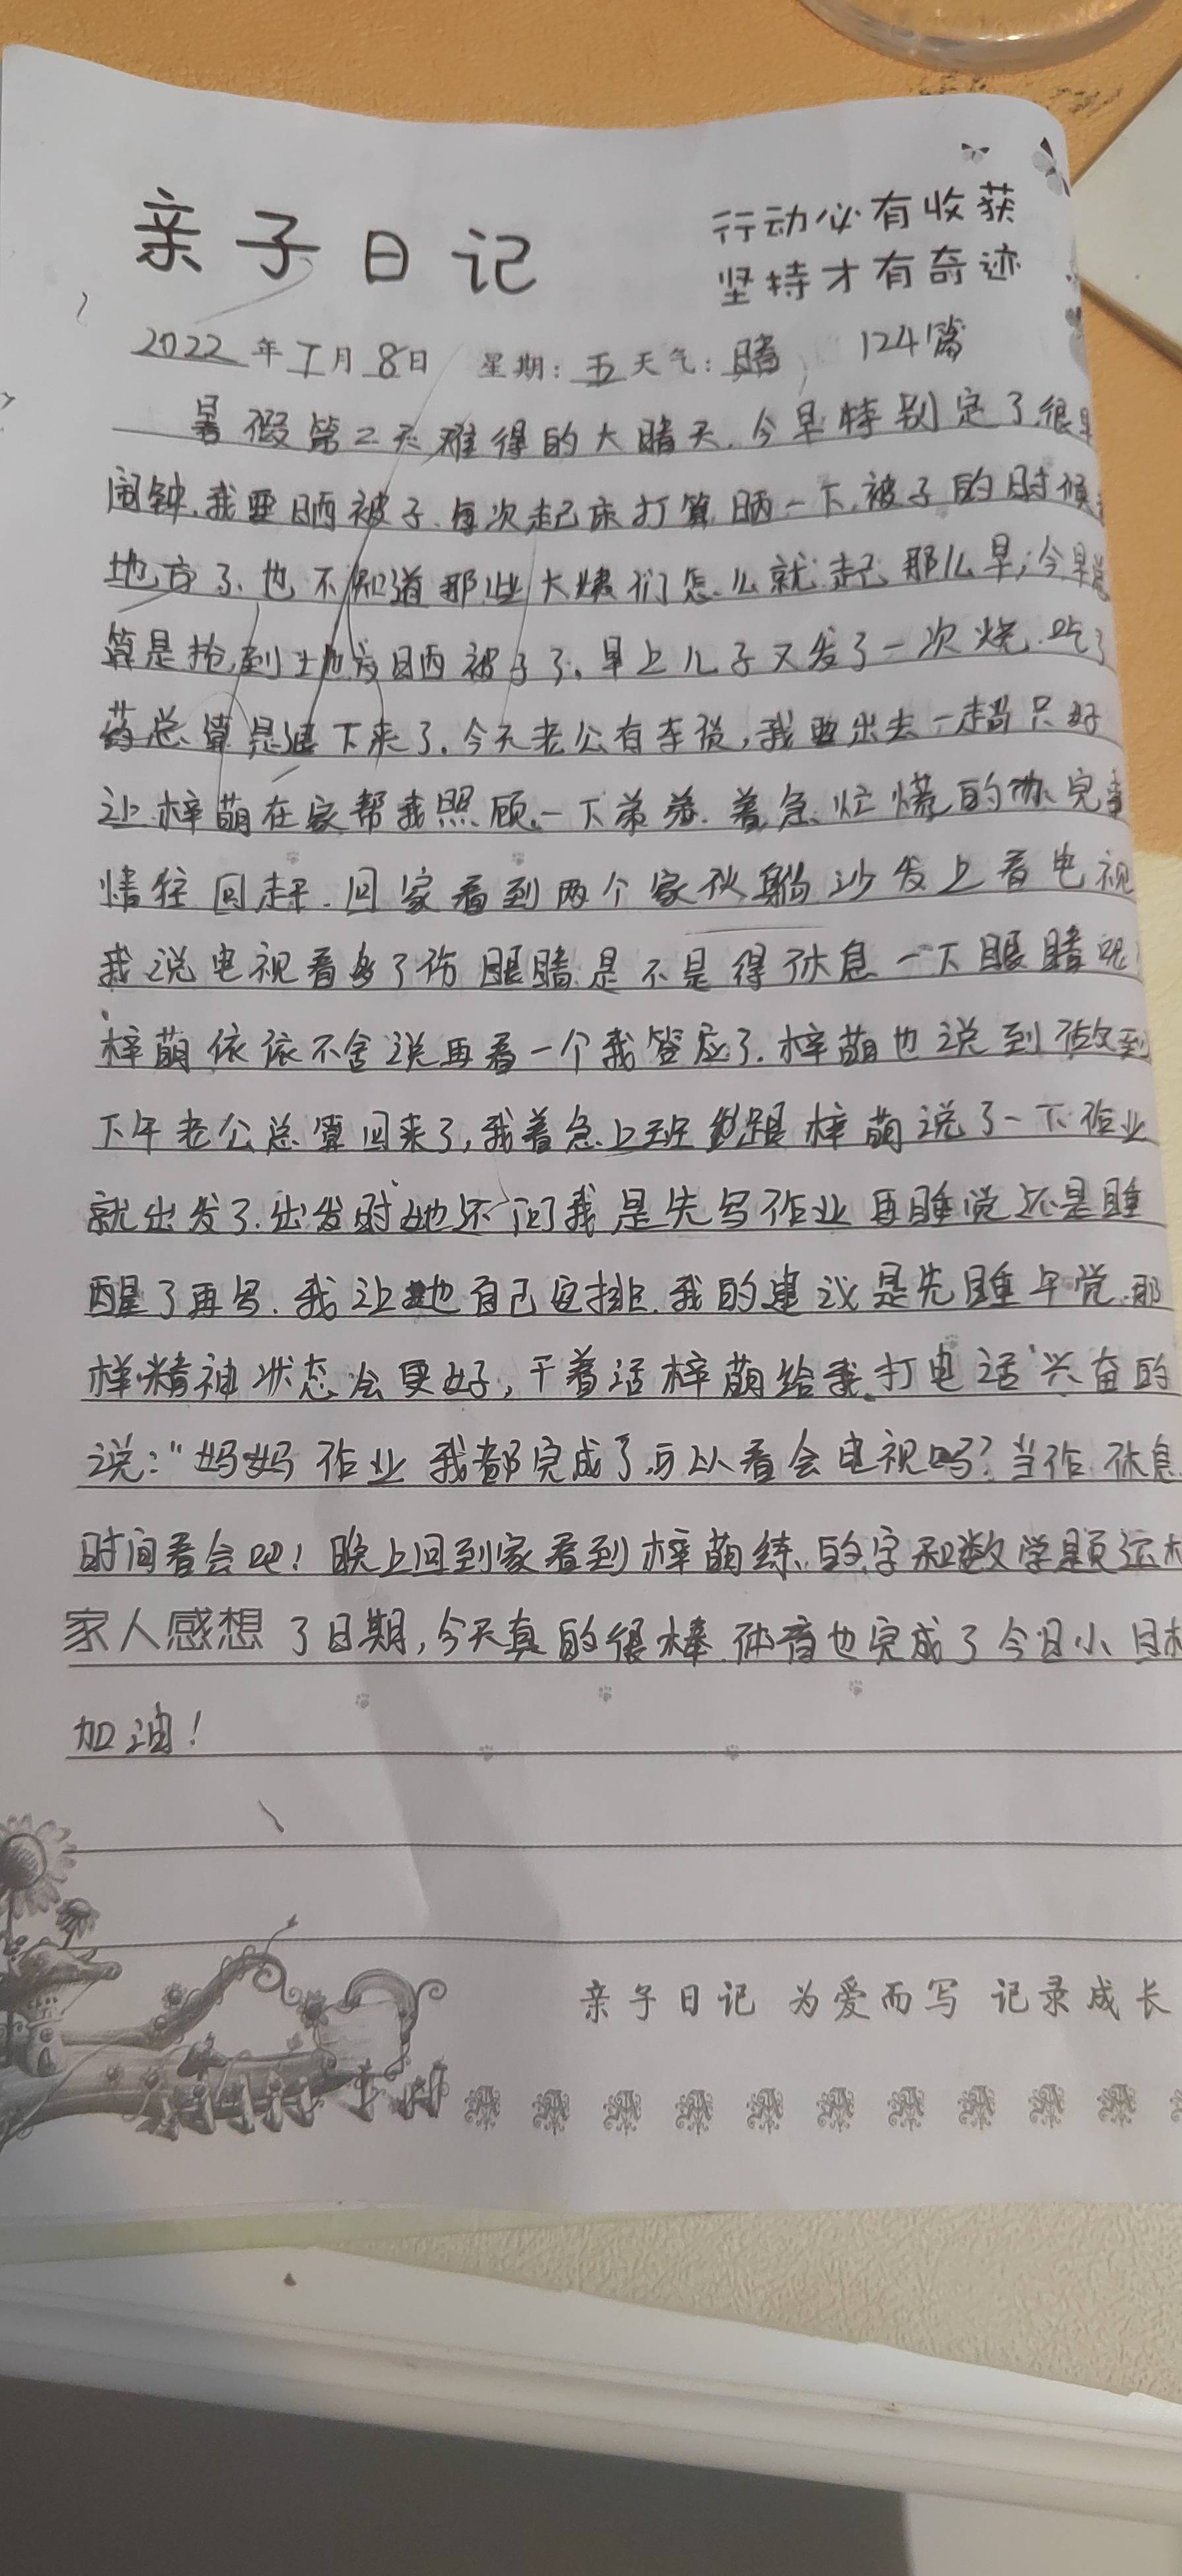 亲子日记
行动必有收获
坚持才有奇迹
2022年7月8日 星期:五天气:晴 124篇
暑假第二天难得的大晴天.今早特别定了很早
闹钟.我要晒被子.每次起床打算晒一下被子的时候
地方了.也不知道那些大姨们怎么就起那么早;今早
算是抢到地方晒被子了.早上儿子又发了一次烧.吃了
药总算是退下来了.今天老公有车货,我要出去一趟只好
让梓萌在家帮我照顾一下弟弟.着急忙慌的办完事
情往回赶.回家看到两个家伙躺沙发上看电视
我说电视看多了伤眼睛是不是得休息一下眼睛呢
梓萌依依不舍说再看一个我答应了.梓萌也说到做到
下午老公总算回来了,我着急上班 跟梓萌说了一下作业
就出发了.出发时她还问我是先写作业再睡觉还是睡
醒了再写.我让她自己安排.我的建议是先睡午觉.那
样精神状态会更好,干着活梓萌给我打电话兴奋的
说:"妈妈作业我都完成了,可以看会电视吗?当作休息
时间看会吧!晚上回到家看到梓萌练的字和数学题还
家人感想 了日期,今天真的很棒.体育也完成了今日小目标
加油!
亲子日记 为爱而写 记录成长